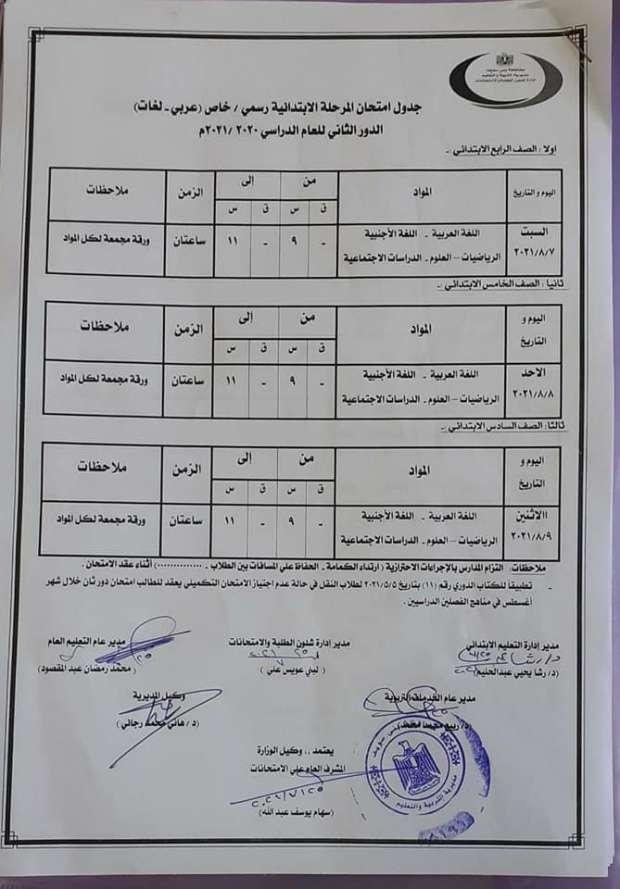 محافظة بني سويف
مديرية التربية والتعليم
جدول امتحان المرحلة الابتدائية رسمي / خاص (عربي - لغات)
الدور الثاني للعام الدراسي ٢٠٢٠ /٢٠٢١م
اولا : الصف الرابع الابتدائي :-
اليوم و التاريخ المواد من إلى الزمن ملاحظات
ق س ق س
السبت ٢٠٢١/٨/٧ اللغة العربية - اللغة الأجنبية - ٩ - ١١ ساعتان ورقة مجمعة لكل المواد
الرياضيات – العلوم - الدراسات الاجتماعية
ثانيا : الصف الخامس الابتدائي :-
اليوم و التاريخ المواد من إلى الزمن ملاحظات
ق س ق س
الاحد ٢٠٢١/٨/٨ اللغة العربية - اللغة الأجنبية - ٩ - ١١ ساعتان ورقة مجمعة لكل المواد
الرياضيات – العلوم - الدراسات الاجتماعية
ثالثا : الصف السادس الابتدائي :-
اليوم و التاريخ المواد من إلى الزمن ملاحظات
ق س ق س
الاثنين ٢٠٢١/٨/٩ اللغة العربية - اللغة الأجنبية - ٩ - ١١ ساعتان ورقة مجمعة لكل المواد
الرياضيات – العلوم - الدراسات الاجتماعية
ملاحظات : التزام المدارس بالإجراءات الاحترازية ( ارتداء الكمامة - الحفاظ علي المسافات بين الطلاب - ............) أثناء عقد الامتحان .
- تطبيقاً للكتاب الدوري رقم (١١) بتاريخ ٢٠٢١/٥/٥ لطلاب النقل في حالة عدم اجتياز الامتحان التكميلي يعقد للطالب امتحان دور ثان خلال شهر
أغسطس في مناهج الفصلين الدراسيين .
مدير إدارة التعليم الابتدائي مدير إدارة شئون الطلبة والامتحانات مدير عام التعليم العام
(د/ رشا يحيي عبدالحليم) ( لبني عويس علي ) ( محمد رمضان عبد المقصود)
مدير عام الخدمات التربوية وكيل المديرية
(د/ ربيع محمد) (د/ هاني محمد رجائي)
يعتمد ،، وكيل الوزارة
المشرف العام علي الامتحانات
٢٠٢١/٧/٢٥
(سهام يوسف عبد الله)
مديرية التربية والتعليم